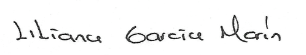 Liliana Garcia Marín